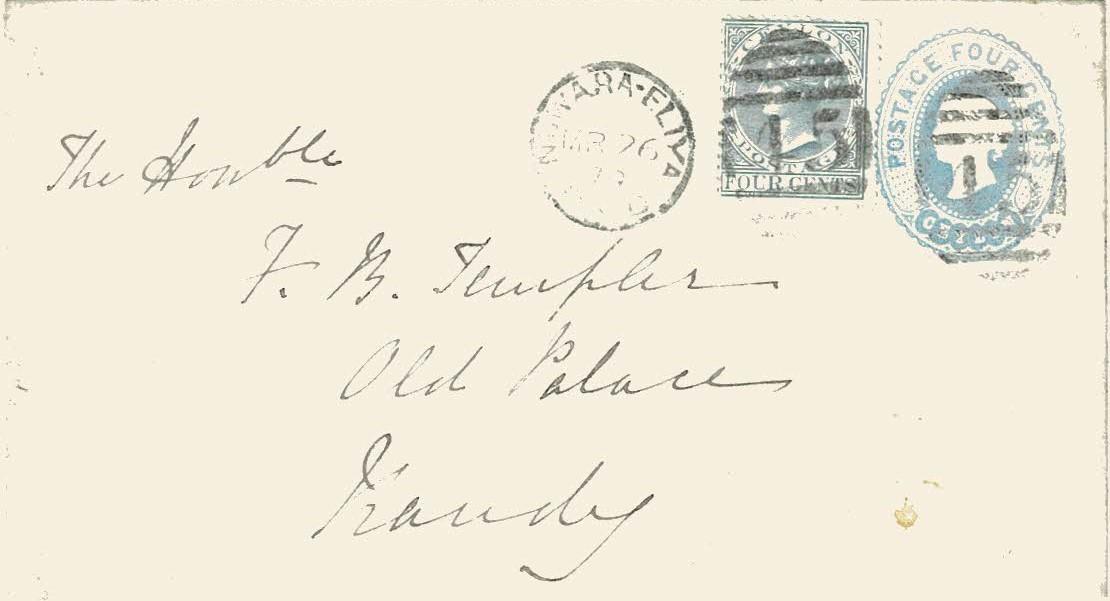 NUWARA-ELIYA
MR 26
CEYLON
POSTAGE
FOUR CENTS
15
POSTAGE FOUR CENTS
CEYLON
The Honble
F. B. Templer
Old Palace
Kandy